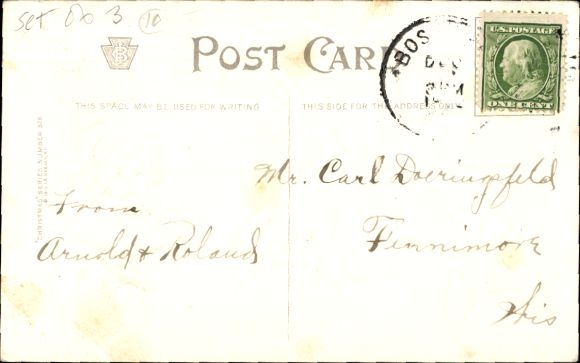 set Do 3 10
POST CARD
BOS
DEC
U.S. POSTAGE
ONE CENT
THIS SPACE MAY BE USED FOR WRITING
THIS SIDE FOR THE ADDRESS ONLY
"CHRISTMAS" SERIES NUMBER
From
Arnold & Roland
Mr. Carl Doeringsfeld
Fennimore
Wis